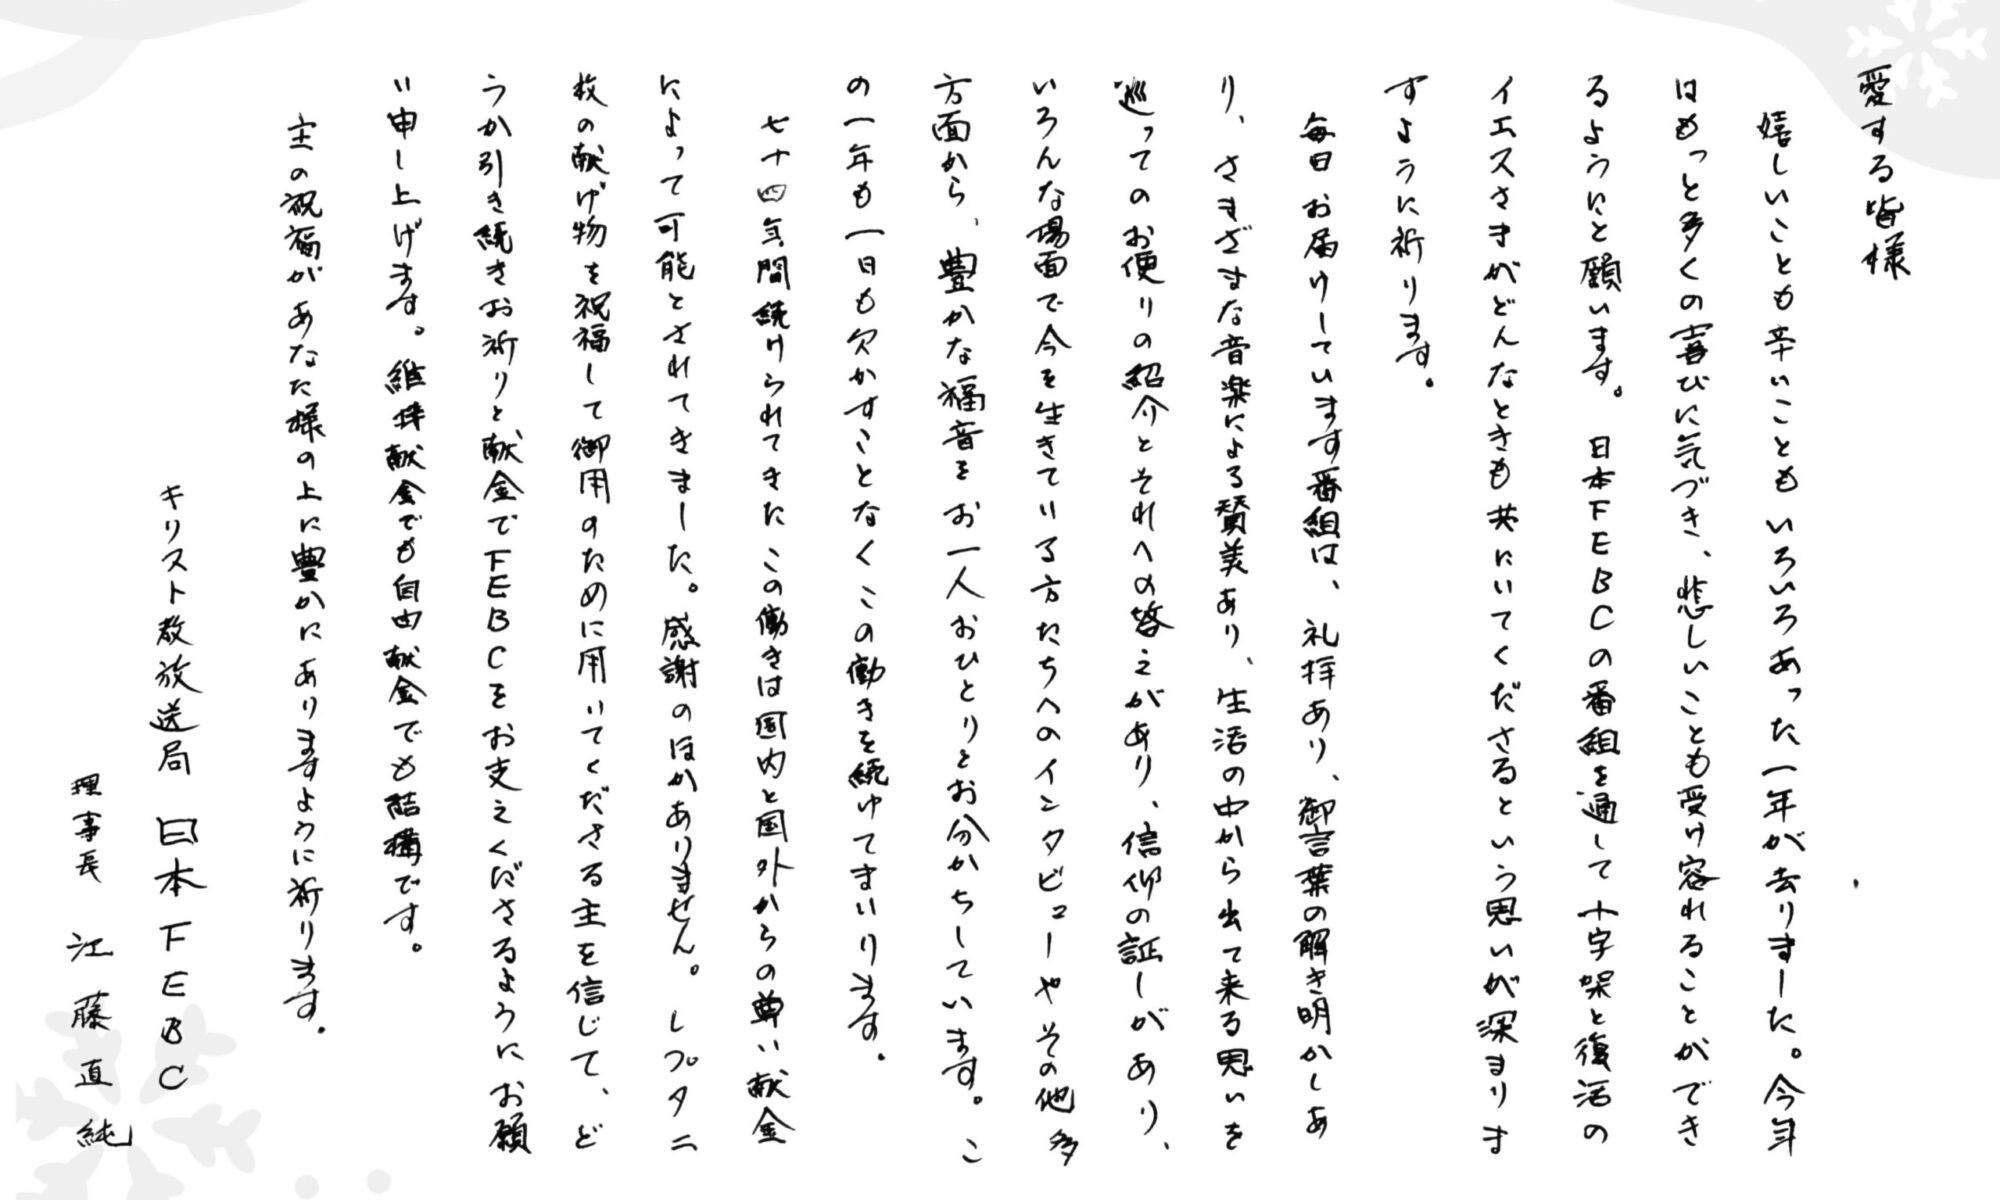 愛する皆様
嬉しいことも辛いこともいろいろあった一年が去りました。今年
はもっと多くの喜びに気づき、悲しいことも受け容れることができ
るようにと願います。日本FEBCの番組を通して十字架と復活の
イエスさまがどんなときも共にいてくださるという思いが深まりま
すように祈ります。
毎日お届けしています番組は、礼拝あり、御言葉の解き明かしあ
り、さまざまな音楽による賛美あり、生活の中から出て来る思いを
巡ってのお便りの紹介とそれへの答えがあり、信仰の証しがあり、
いろんな場面で今を生きている方たちへのインタビューやその他多
方面から、豊かな福音をお一人おひとりとお分かちしています。こ
の一年も一日も欠かすことなくこの働きを続けてまいります。
七十四年間続けられてきたこの働きは国内と国外からの尊い献金
によって可能とされてきました。感謝のほかありません。レプタ二
枚の献げ物を祝福して御用のために用いてくださる主を信じて、ど
うか引き続きお祈りと献金でFEBCをお支えくださるようにお願
い申し上げます。維持献金でも自由献金でも結構です。
主の祝福があなた様の上に豊かにありますように祈ります。
キリスト教放送局 日本FEBC
理事長 江藤直純